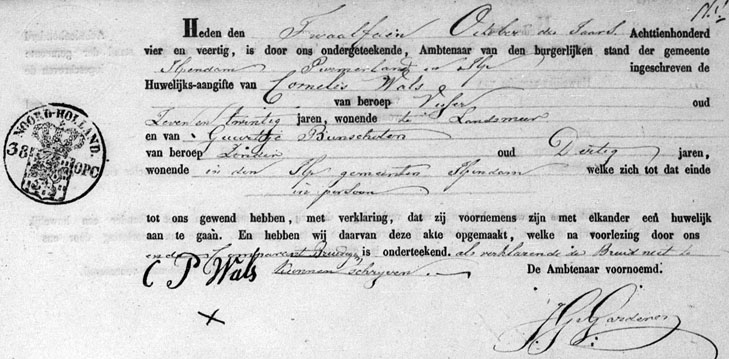 Heden den Twaalfden October des Jaars Achttienhonderd
vier en veertig, is door ons ondergeteekende, Ambtenaar van den burgerlijken stand der gemeente
Ilpendam Purmerland en Ilp ingeschreven de
Huwelijks-aangifte van Cornelis Wals
van beroep Visser oud
Zeven en twintig jaren, wonende te Landsmeer
en van Guurtje Bunschoten
van beroep Zonder oud Dertig jaren,
wonende in den Ilp gemeenten Ilpendam welke zich tot dat einde
in persoon
tot ons gewend hebben, met verklaring, dat zij voornemens zijn met elkander een huwelijk
aan te gaan. En hebben wij daarvan deze akte opgemaakt, welke na voorlezing door ons
en de Comparant Bruidegom is onderteekend. als verklarende de Bruid niet te
kunnen schryven.
De Ambtenaar voornoemd.
C P Wals
NOORD-HOLLAND.
38 OPC